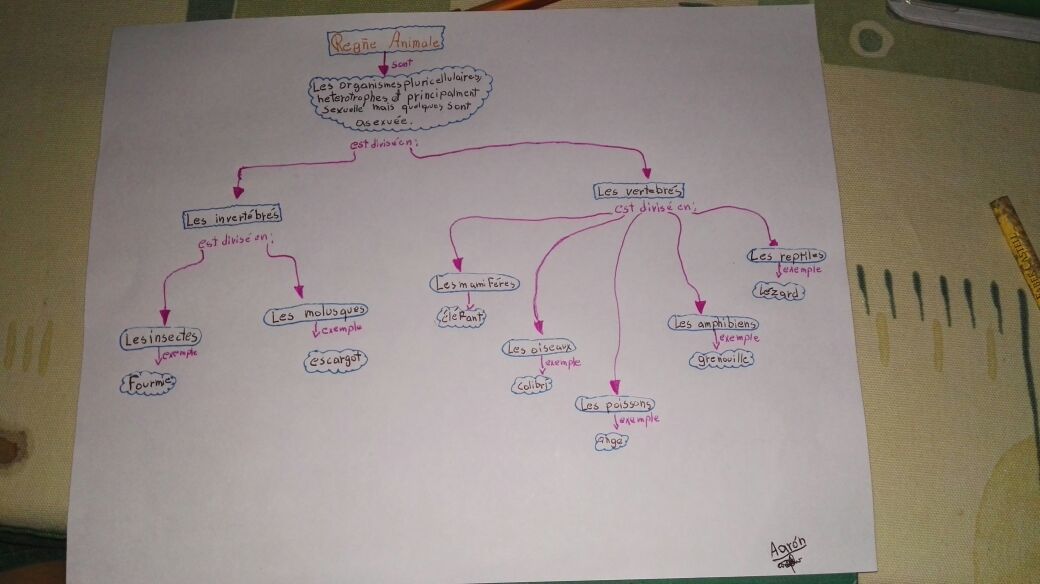 Regñe Animale
sont
Les organismes pluricellulaires,
heterotrophes et principalment
sexuelle mais quelques sont
asexuée.
est divisé en:
Les invertébrés
est divisé en:
Les insectes
exemple
Fourmie
Les molusques
exemple
escargot
Les vertebrés
est divisé en:
Les mamiféres
exemple
élefant
Les oiseaux
exemple
colibrí
Les poissons
exemple
Ange
Les amphibiens
exemple
grenouille
Les reptiles
exemple
Lézard
Aarón